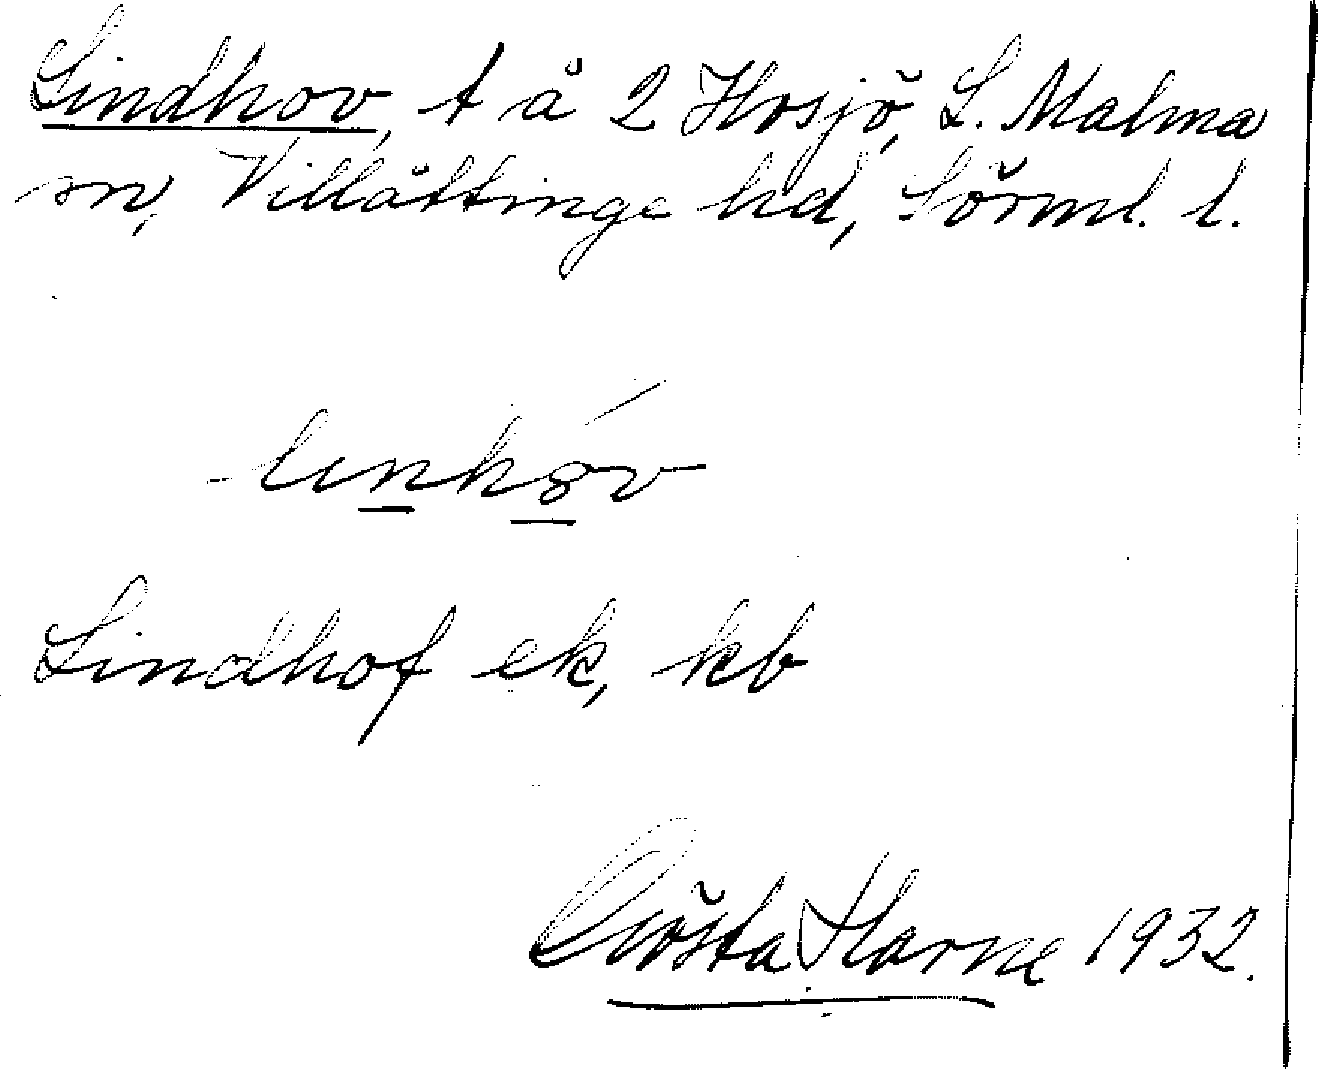 Lindhov, t å 2 Hosjö, L. Malma
sn, Villåttinge hd, Sörml. l.
Lindhof ek, kb
Gösta Harne 1932.